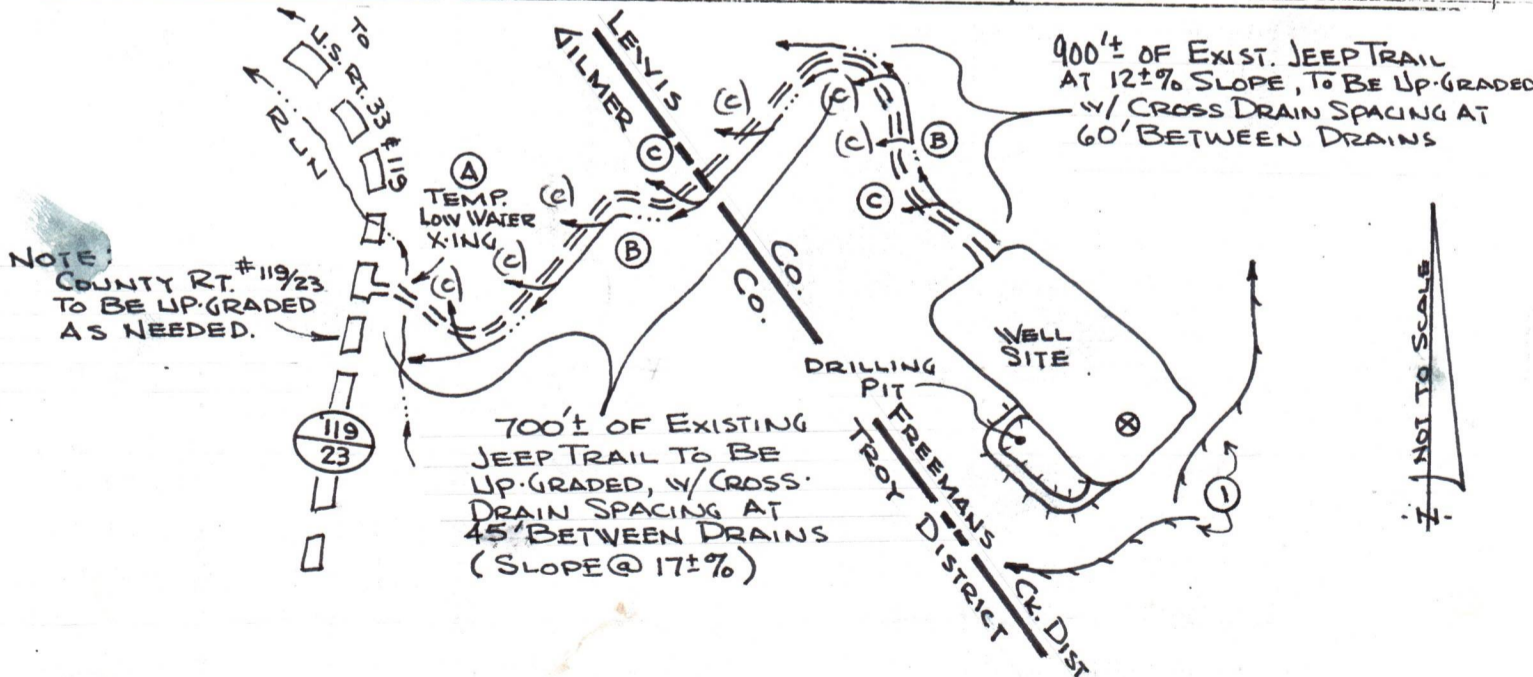 TO
U.S. RT. 33 & 119
RUN
LEWIS
GILMER
CO.
CO.
900'± OF EXIST. JEEP TRAIL
AT 12±% SLOPE, TO BE UP-GRADED
W/ CROSS DRAIN SPACING AT
60' BETWEEN DRAINS
(C)
(C)
(C)
B
C
C
A
TEMP.
LOW WATER
X-ING
(C)
(C)
(C)
B
NOTE:
COUNTY RT. #119/23
TO BE UP-GRADED
AS NEEDED.
119
23
700'± OF EXISTING
JEEP TRAIL TO BE
UP-GRADED, W/ CROSS-
DRAIN SPACING AT
45' BETWEEN DRAINS
(SLOPE @ 17±%)
WELL
SITE
DRILLING
PIT
FREEMANS CK. DIST
TROY DISTRICT
1
NOT TO SCALE
N